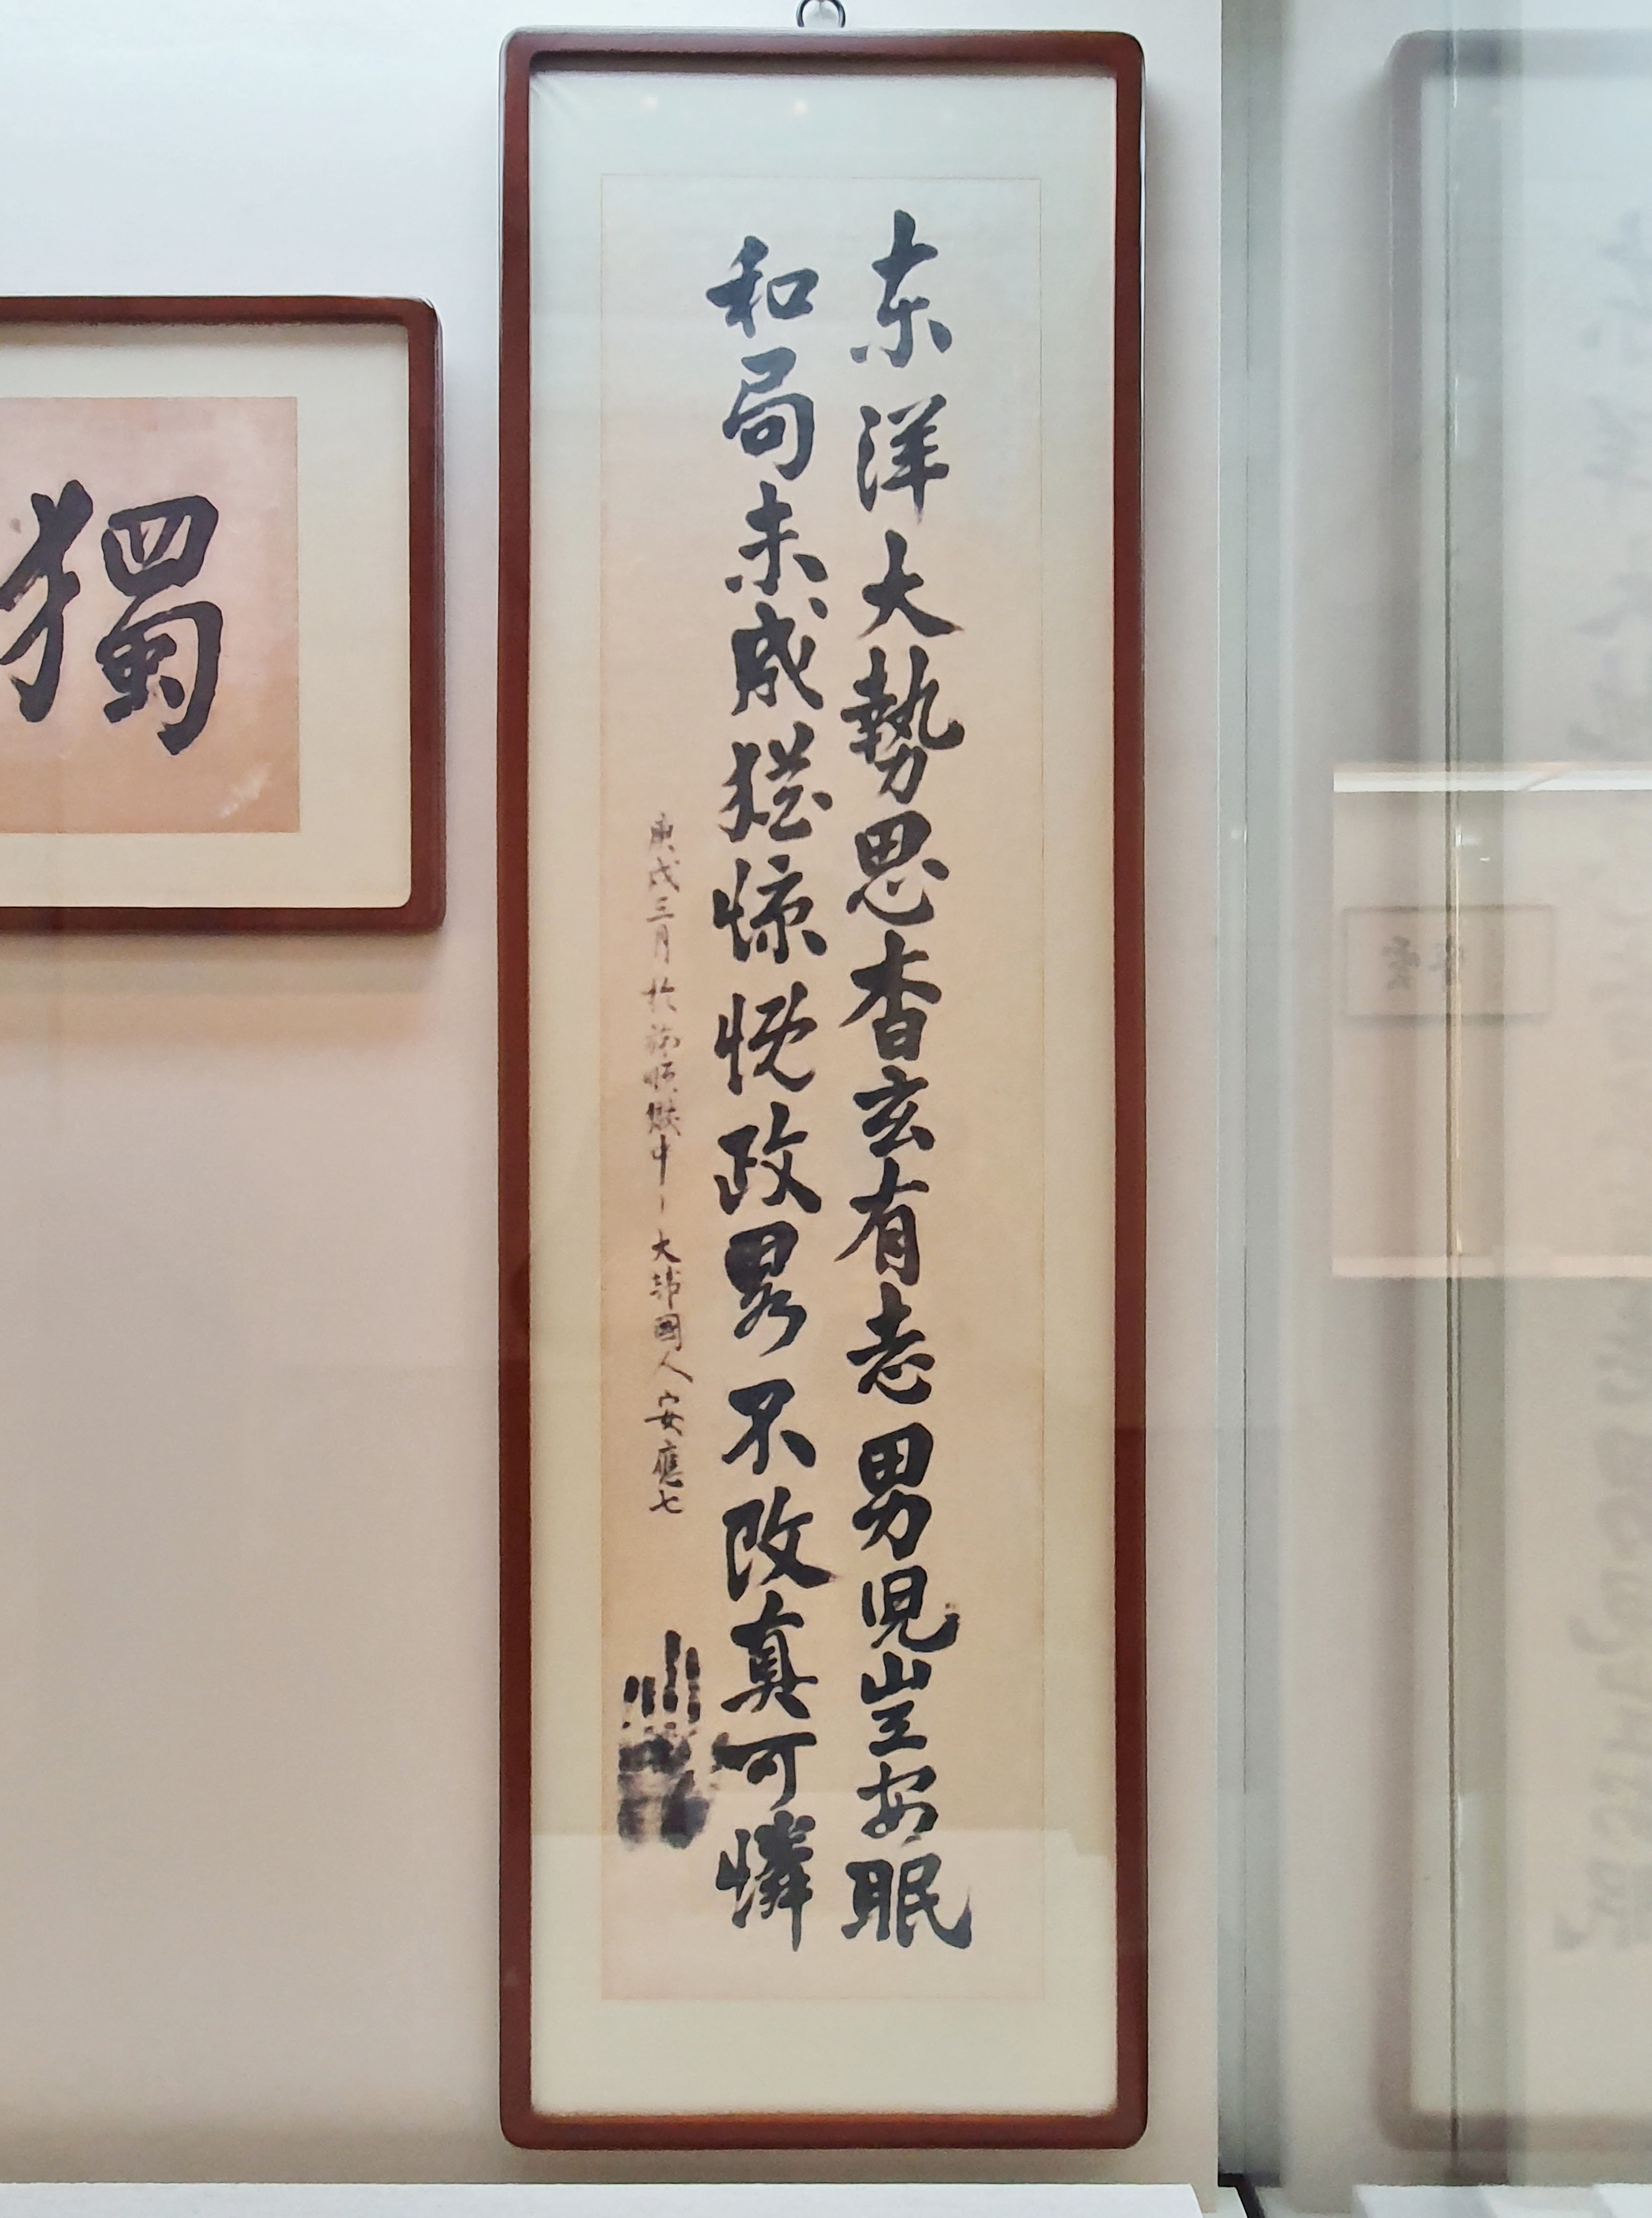 东洋大勢思杳玄有志男児豈安眠
和局未成猶慷慨政畧不改真可憐
庚戌三月於旅順獄中 大韓國人安應七
獨